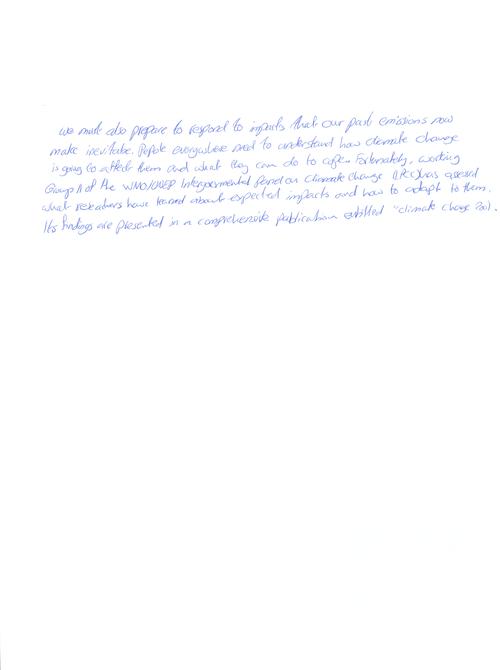 we must also prepare to respond to impacts that our past emissions now
make inevitabe. Pepole everywhere need to understand how climate change
is going to affect them and what they can do to cope. Fortunately, working
Group II of the WMO/UNEP Intergovernmental Panel on Climate Change (IPCC) has assessed
what reseachers have learned about expected impacts and how to adapt to them.
Its findings are presented in a comprehensive publication entitled "climate change 2001.